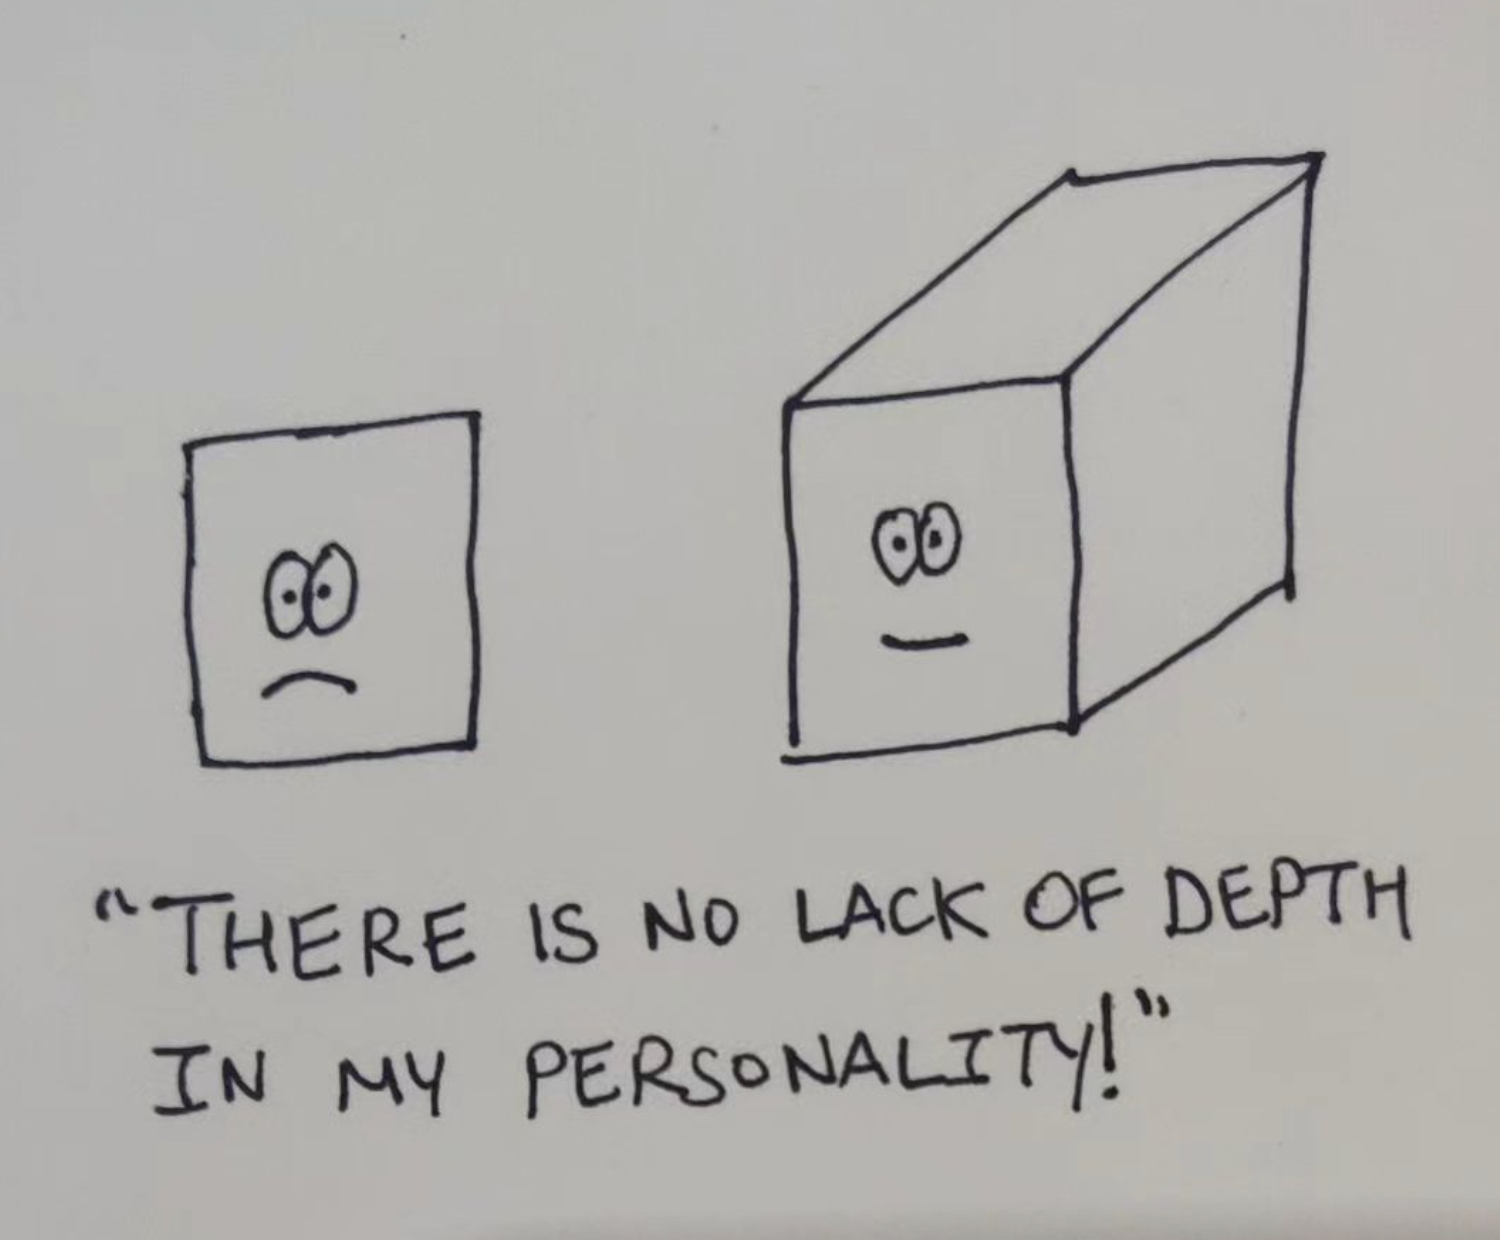 "THERE IS NO LACK OF DEPTH
IN MY PERSONALITY!"